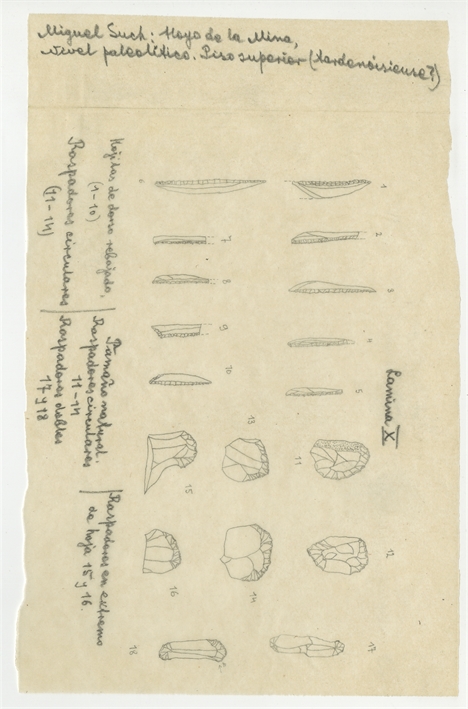 Miguel Such: Hoyo de la Mina,
Nivel paleolítico. Piso superior (Tardenoisiense?)
Lamina X
1
2
3
4
5
6
7
8
9
10
11
12
13
14
15
16
17
18
Hojitas de dorso rebajado,
(1-10)
Raspadores circulares
(11-14)
Tamaño natural.
Raspadores circulares
11-14
Raspadores dobles
17 y 18
Raspadores en extremo
de hoja 15 y 16.